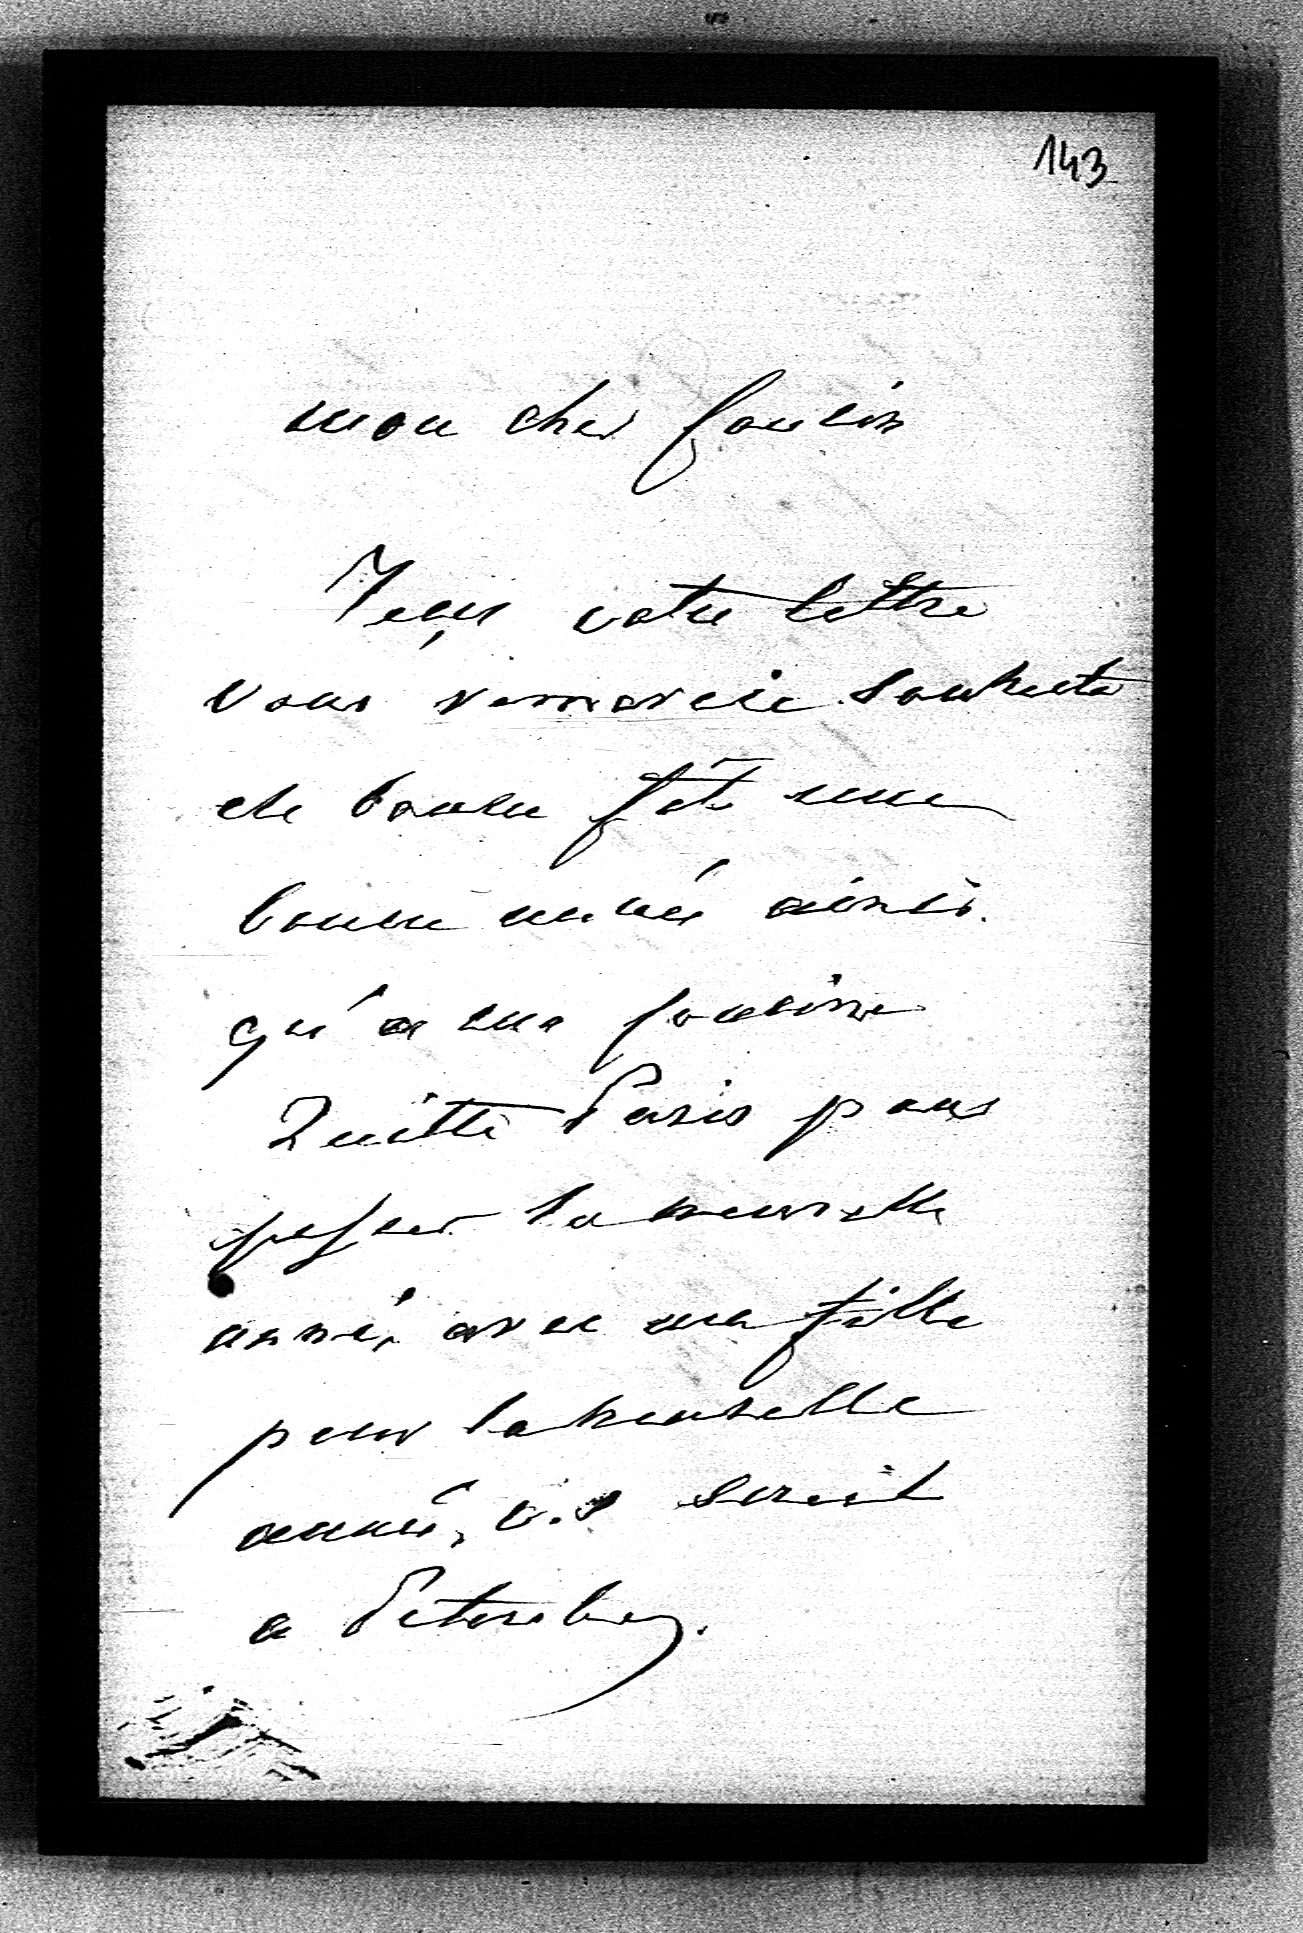 143
mon cher cousin
Reçu votre lettre
vous remercie souhaite
de bonne fête une
bonne année ainsi
qu'a ma cousine
Quitté Paris pour
passer la nouvelle
année, avec ma fille
pour la nouvelle
année, v.s serait
a Petersburg.